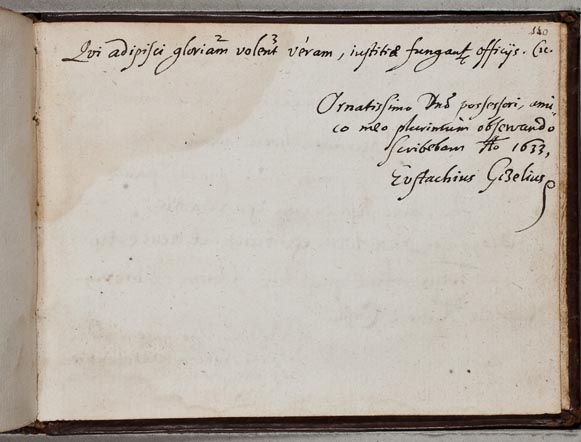 140
Qui adipisci gloriam volent veram, iustitiæ fungantur officijs. Cic.
Ornatissimo Dno possessori, ami
co meo plurimum observando
scribebam Ao 1633,
Eustachius Gizelius